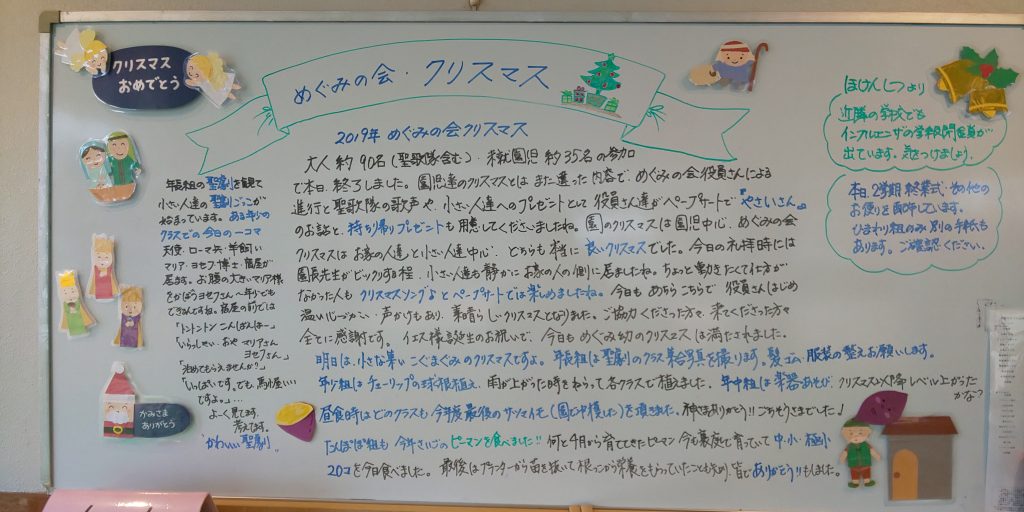 クリスマス
おめでとう
めぐみの会・クリスマス
2019年 めぐみの会クリスマス
大人 約90名(聖歌隊含む)・未就園児 約35名の参加
で本日、終了しました。園児達のクリスマスとは また違った内容で、めぐみの会役員さんによる
進行と聖歌隊の歌声や、小さい人達へのプレゼントとして 役員さん達がペープサートで "やさいさん"
のお話と、持ち帰りプレゼントも用意してくださいましたね。園のクリスマスは園児中心、めぐみの会
クリスマスは お家の人達と小さい人達中心、どちらも本当に 良いクリスマスでした。今日の礼拝時には
園長先生がビックリする程、小さい人達も静かにお家の人の側に居ましたね。ちょっと動きたくて仕方が
なかった人も クリスマスソング♪とペープサートでは楽しめましたね。今日も あちらこちらで 役員さんはじめ
温い心づかい、声かけもあり、素晴らしいクリスマスとなりました。ご協力くださった方々、来てくださった方々
全てに感謝です。イエス様お誕生のお祝いで、今日も めぐみ幼のクリスマスは満たされました。
明日は、小さな集い こぐまぐみのクリスマスですよ。年長組は聖劇のクラス集合写真を撮ります。髪ゴム、服装の整えお願いします。
年少組は チューリップの球根植え、雨が上がった時をねらって各クラスで植えました。年中組は楽器あそび、クリスマス以降レベル上がった
かな?
昼食時はどのクラスも 今年度最後のサツマイモ(園に中穫した)を頂きました。神さまありがとう!! ごちそうさまでした!
たんぽぽ組も 今年さいごのピーマンを食べました!! 何と4月から育ててきたピーマン 今も裏庭で育っていて 中・小・極小
20コを今日食べました。最後はプランターから苗を抜いて 根っこから栄養をもらっていたことも知り、皆でありがとう!!もしました。
年長組の聖劇を観て
小さい人達の聖劇ごっこが
始まっています。ある年少の
クラスでの今日の一コマ
天使・ローマ兵・羊飼い
マリア・ヨセフ・博士・宿屋が
居ます。お腹の大きいマリア様
をかばうヨセフさん〜年少でも
できるんですね。宿屋の前では
「トントントン こんばんはー」
「いらっしゃい、おや マリアさん
ヨセフさん」
「泊めてもらえませんか?」
「いっぱいです。でも、馬小屋いい
ですよ。」…
よーく見てます。
考えてます。
"かわいい聖劇"
かみさま
ありがとう
ほけんしつより
近隣の学校でも
インフルエンザの学級閉鎖が
出ています。気をつけましょう。
本日、2学期終業式・その他の
お便りを配布しています。
ひまわり組のみ 別の手紙も
あります。ご確認ください。